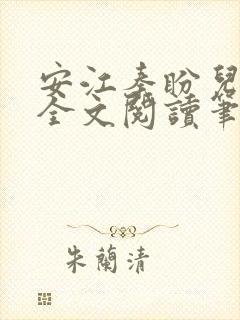 安江秦盼兒
全文閱讀筆
朱蘭清